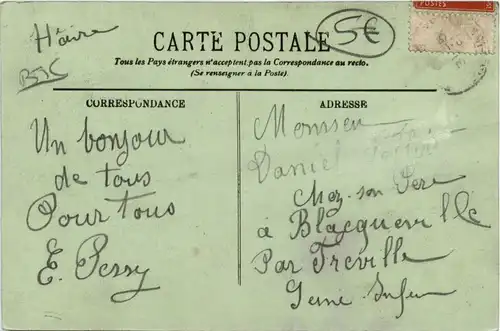 Hâvre
5€
POSTES
CARTE POSTALE
Tous les Pays étrangers n'acceptent pas la Correspondance au recto.
(Se renseigner à la Poste).
CORRESPONDANCE
Un bonjour
de tous
Pour tous
E. Perry
ADRESSE
Monsieu
Daniel
Chez son Père
à Blacquevrille
Par Freville
Seine Infeu